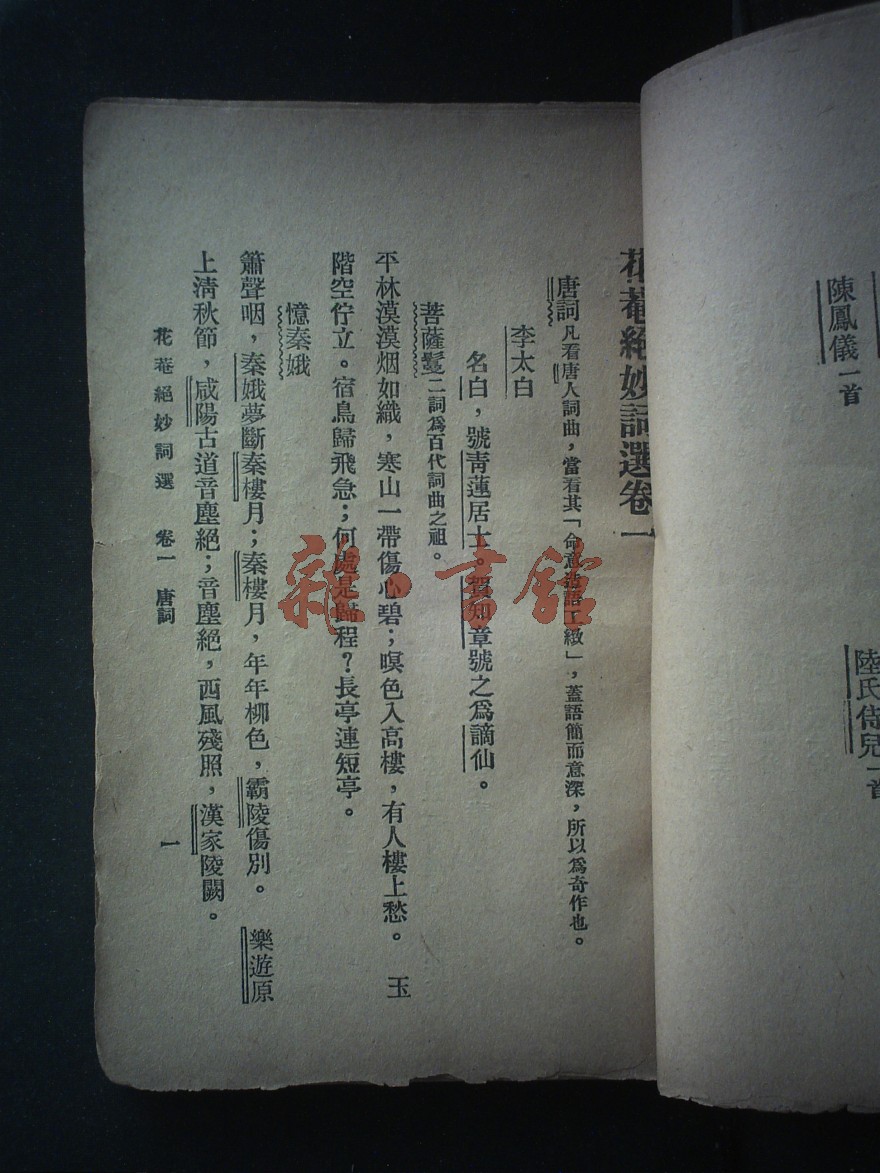 陳鳳儀一首
陸氏侍兒一首
花菴絕妙詞選卷一
唐詞凡看唐人詞曲，當看其「命意造語工緻」，蓋語簡而意深，所以爲奇作也。
李太白
名白，號靑蓮居士。賀知章號之爲謫仙。
菩薩鬘二詞爲百代詞曲之祖。
平林漠漠烟如織，寒山一帶傷心碧；暝色入高樓，有人樓上愁。　玉
階空佇立。宿鳥歸飛急；何處是歸程？長亭連短亭。
憶秦娥
簫聲咽，秦娥夢斷秦樓月；秦樓月，年年柳色，霸陵傷別。　樂遊原
上清秋節，咸陽古道音塵絕；音塵絕，西風殘照，漢家陵闕。
花菴絕妙詞選　卷一　唐詞　一
雜·書館